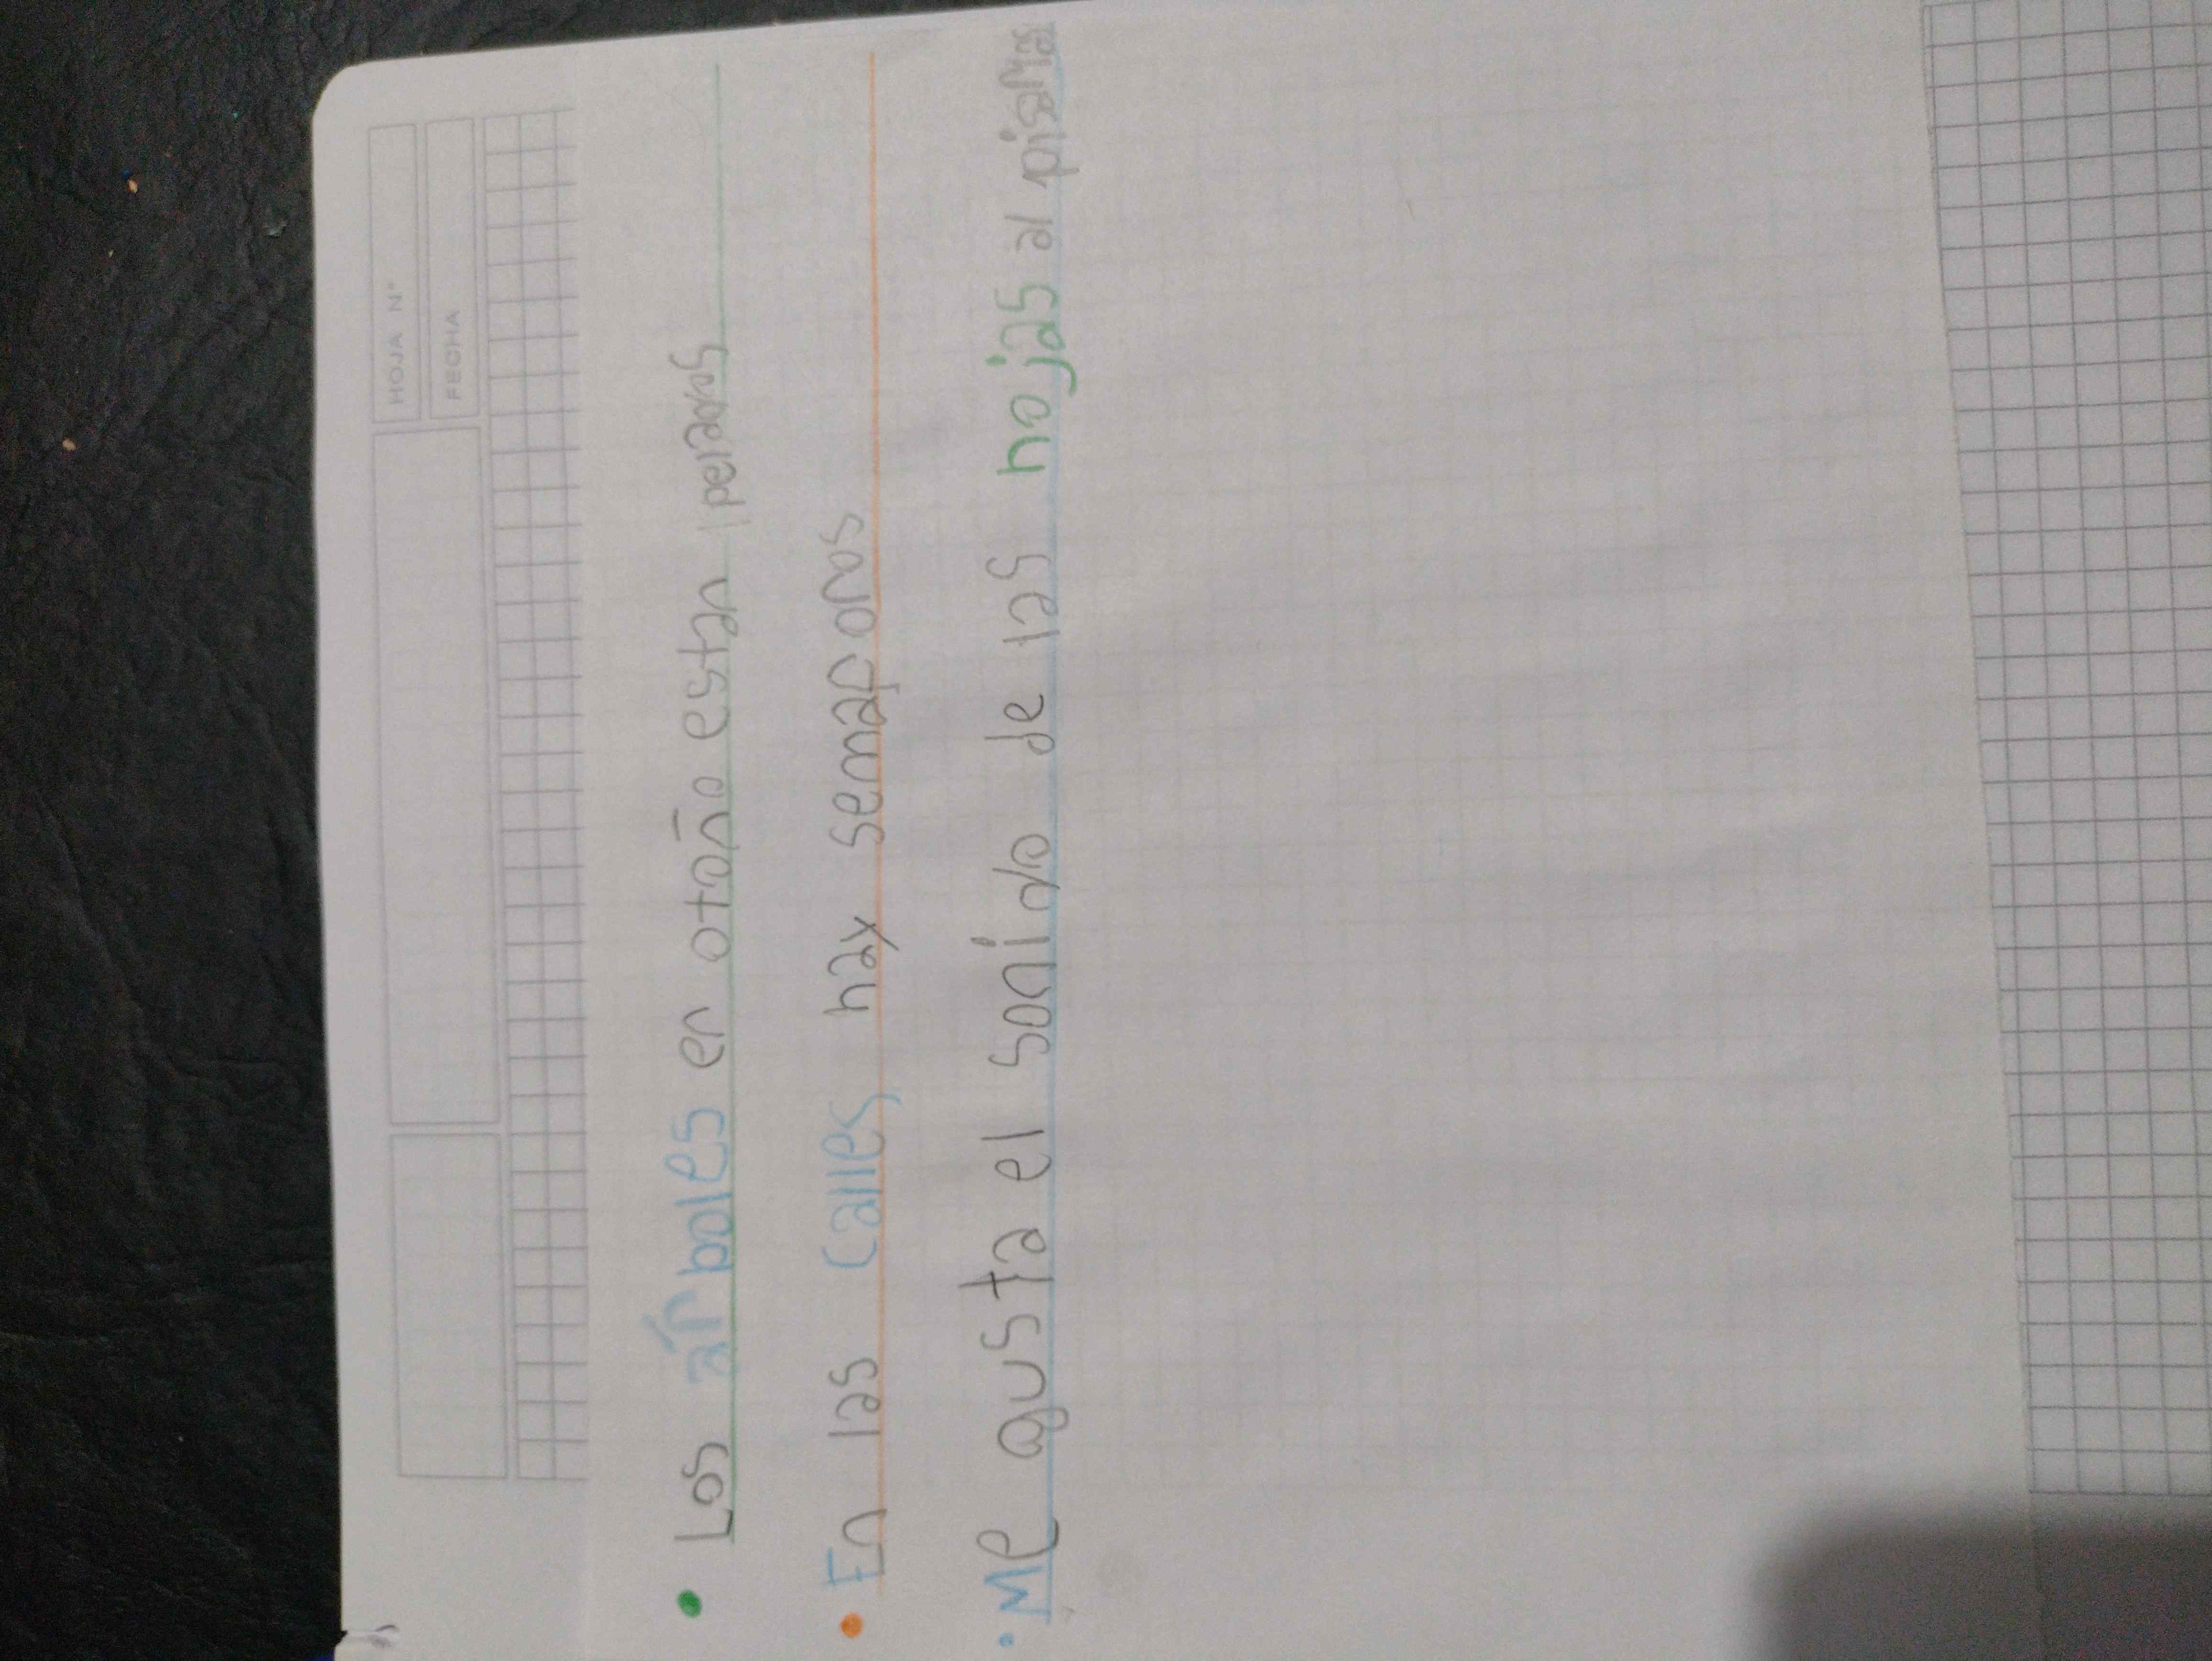 HOJA N°
FECHA
Los árboles en otoño estan pelados
En las calles hay semaporos
Me gusta el sonido de las hojas al pisarlas